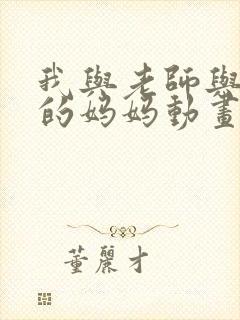 我與老師與
的妈妈動畫
董麗才